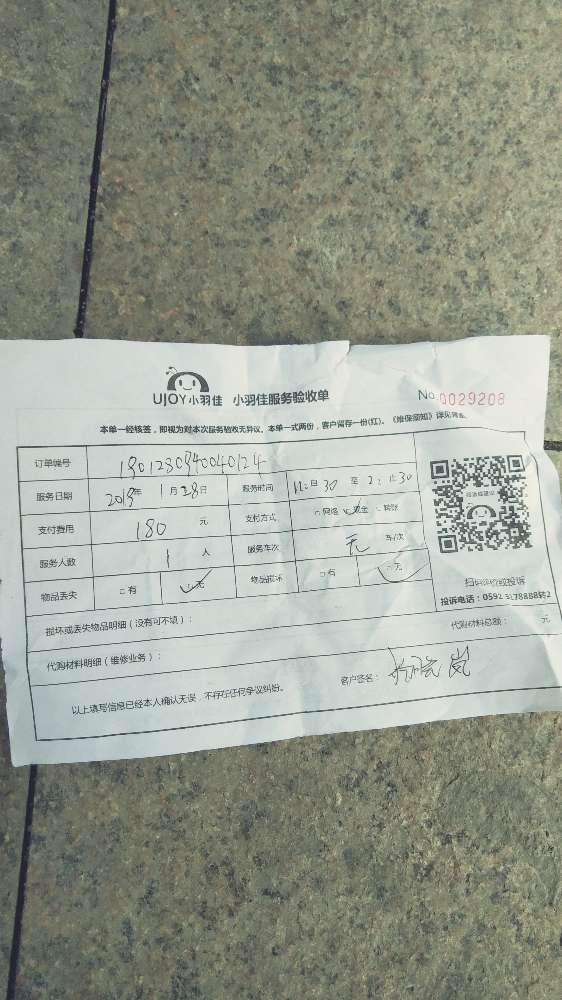 UJOY小羽佳 小羽佳服务验收单 No 0029208
本单一经核签，即视为对本次服务验收无异议。本单一式两份，客户留存一份(红)。《维保须知》详见背面
订单编号
服务日期 年 1月28日 服务时间 30 至 2:30
支付费用 180 元 支付方式 □网络 现金 □转账
服务人数 1 人 服务车次 无 车/次
物品丢失 □有 ✓无 物品损坏 □有 ✓无
扫码评价或投诉
投诉电话：0592 3178888转2
损坏或丢失物品明细（没有可不填）：
代购材料明细（维修业务）： 代购材料总额： 元
以上填写信息已经本人确认无误，不存在任何争议纠纷。 客户签名：